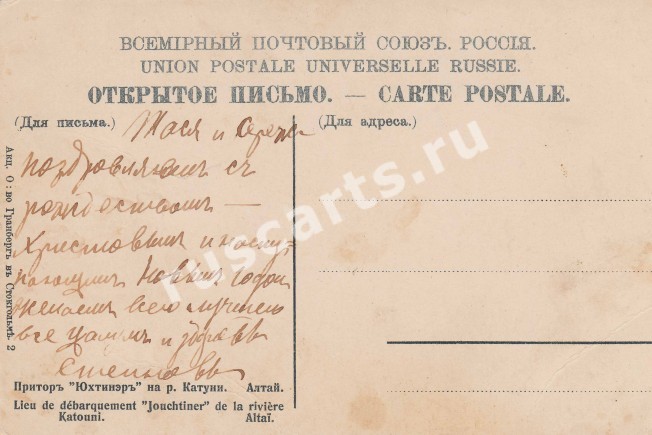 ВСЕМІРНЫЙ ПОЧТОВЫЙ СОЮЗЪ. РОССІЯ.
UNION POSTALE UNIVERSELLE RUSSIE.
ОТКРЫТОЕ ПИСЬМО. — CARTE POSTALE.
(Для письма.)
(Для адреса.)
Тася и Сережа
поздровляем съ
рождеством —
Христовым и насту-
пающим Новым годом
желаем всего лучшего
все
и
Акц. О:во Гранбергъ въ Стокгольмѣ. 2
Приторъ "Юхтинэръ" на р. Катуни. Алтай.
Lieu de débarquement "Jouchtiner" de la rivière
Katouni. Altaï.
ruscarts.ru